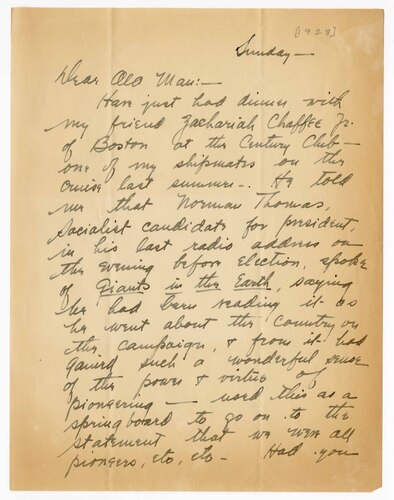 [1928]
Sunday—
Dear Old Man:—
Have just had dinner with
my friend Zachariah Chaffee Jr.
of Boston at the Century Club—
one of my shipmates on the
cruise last summer-. He told
me that Norman Thomas,
Socialist candidate for president,
in his last radio address on
the evening before election, spoke
of Giants in the Earth, saying
he had been reading it as
he went about the country on
the campaign, & from it had
gained such a wonderful sense
of the power & virtue of
pioneering — used this as a
springboard to go on to the
statement that we were all
pioneers, etc, etc- Had you